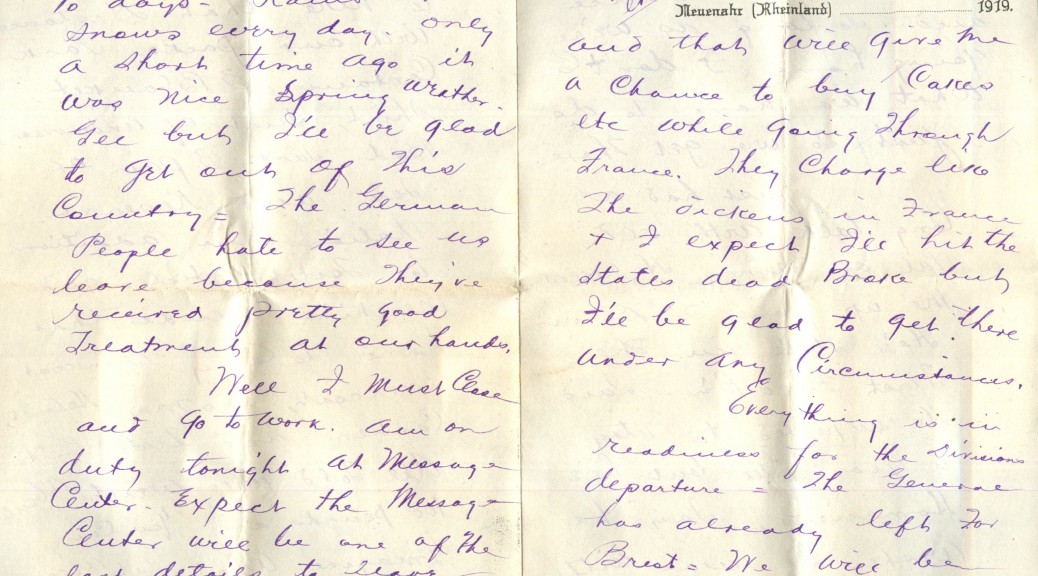 10 days - Rains
Snows every day only
a short time ago it
was Nice Spring Weather.
Gee but I'll be glad
to get out of This
Country = The German
People hate to see us
leave because They've
received pretty good
Treatment at our hands.
Well I Must Close
and go to work. Am on
duty tonight at Message
Center. Expect the Message
Center will be one of The
last details to leave
Neuenahr (Rheinland) 1919.
and that will give me
a Chance to buy Cakes
etc while going Through
France. They Charge like
The Dickens in France
+ I expect I'll hit the
States dead Broke but
I'll be glad to get there
under any Circumstances.
Everything is in
readiness for the Divisions
departure = The General
has already left For
Brest = We will be